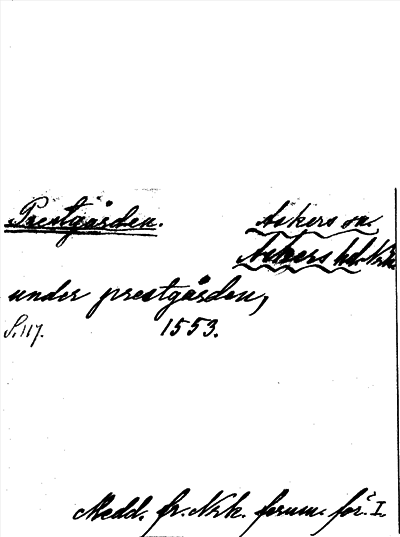 Prestgården. Askers sn.
Askers hd. Nrk.
under prestgården,
S. 117. 1553.
Medd. fr. Nrk. fornm. för. I.